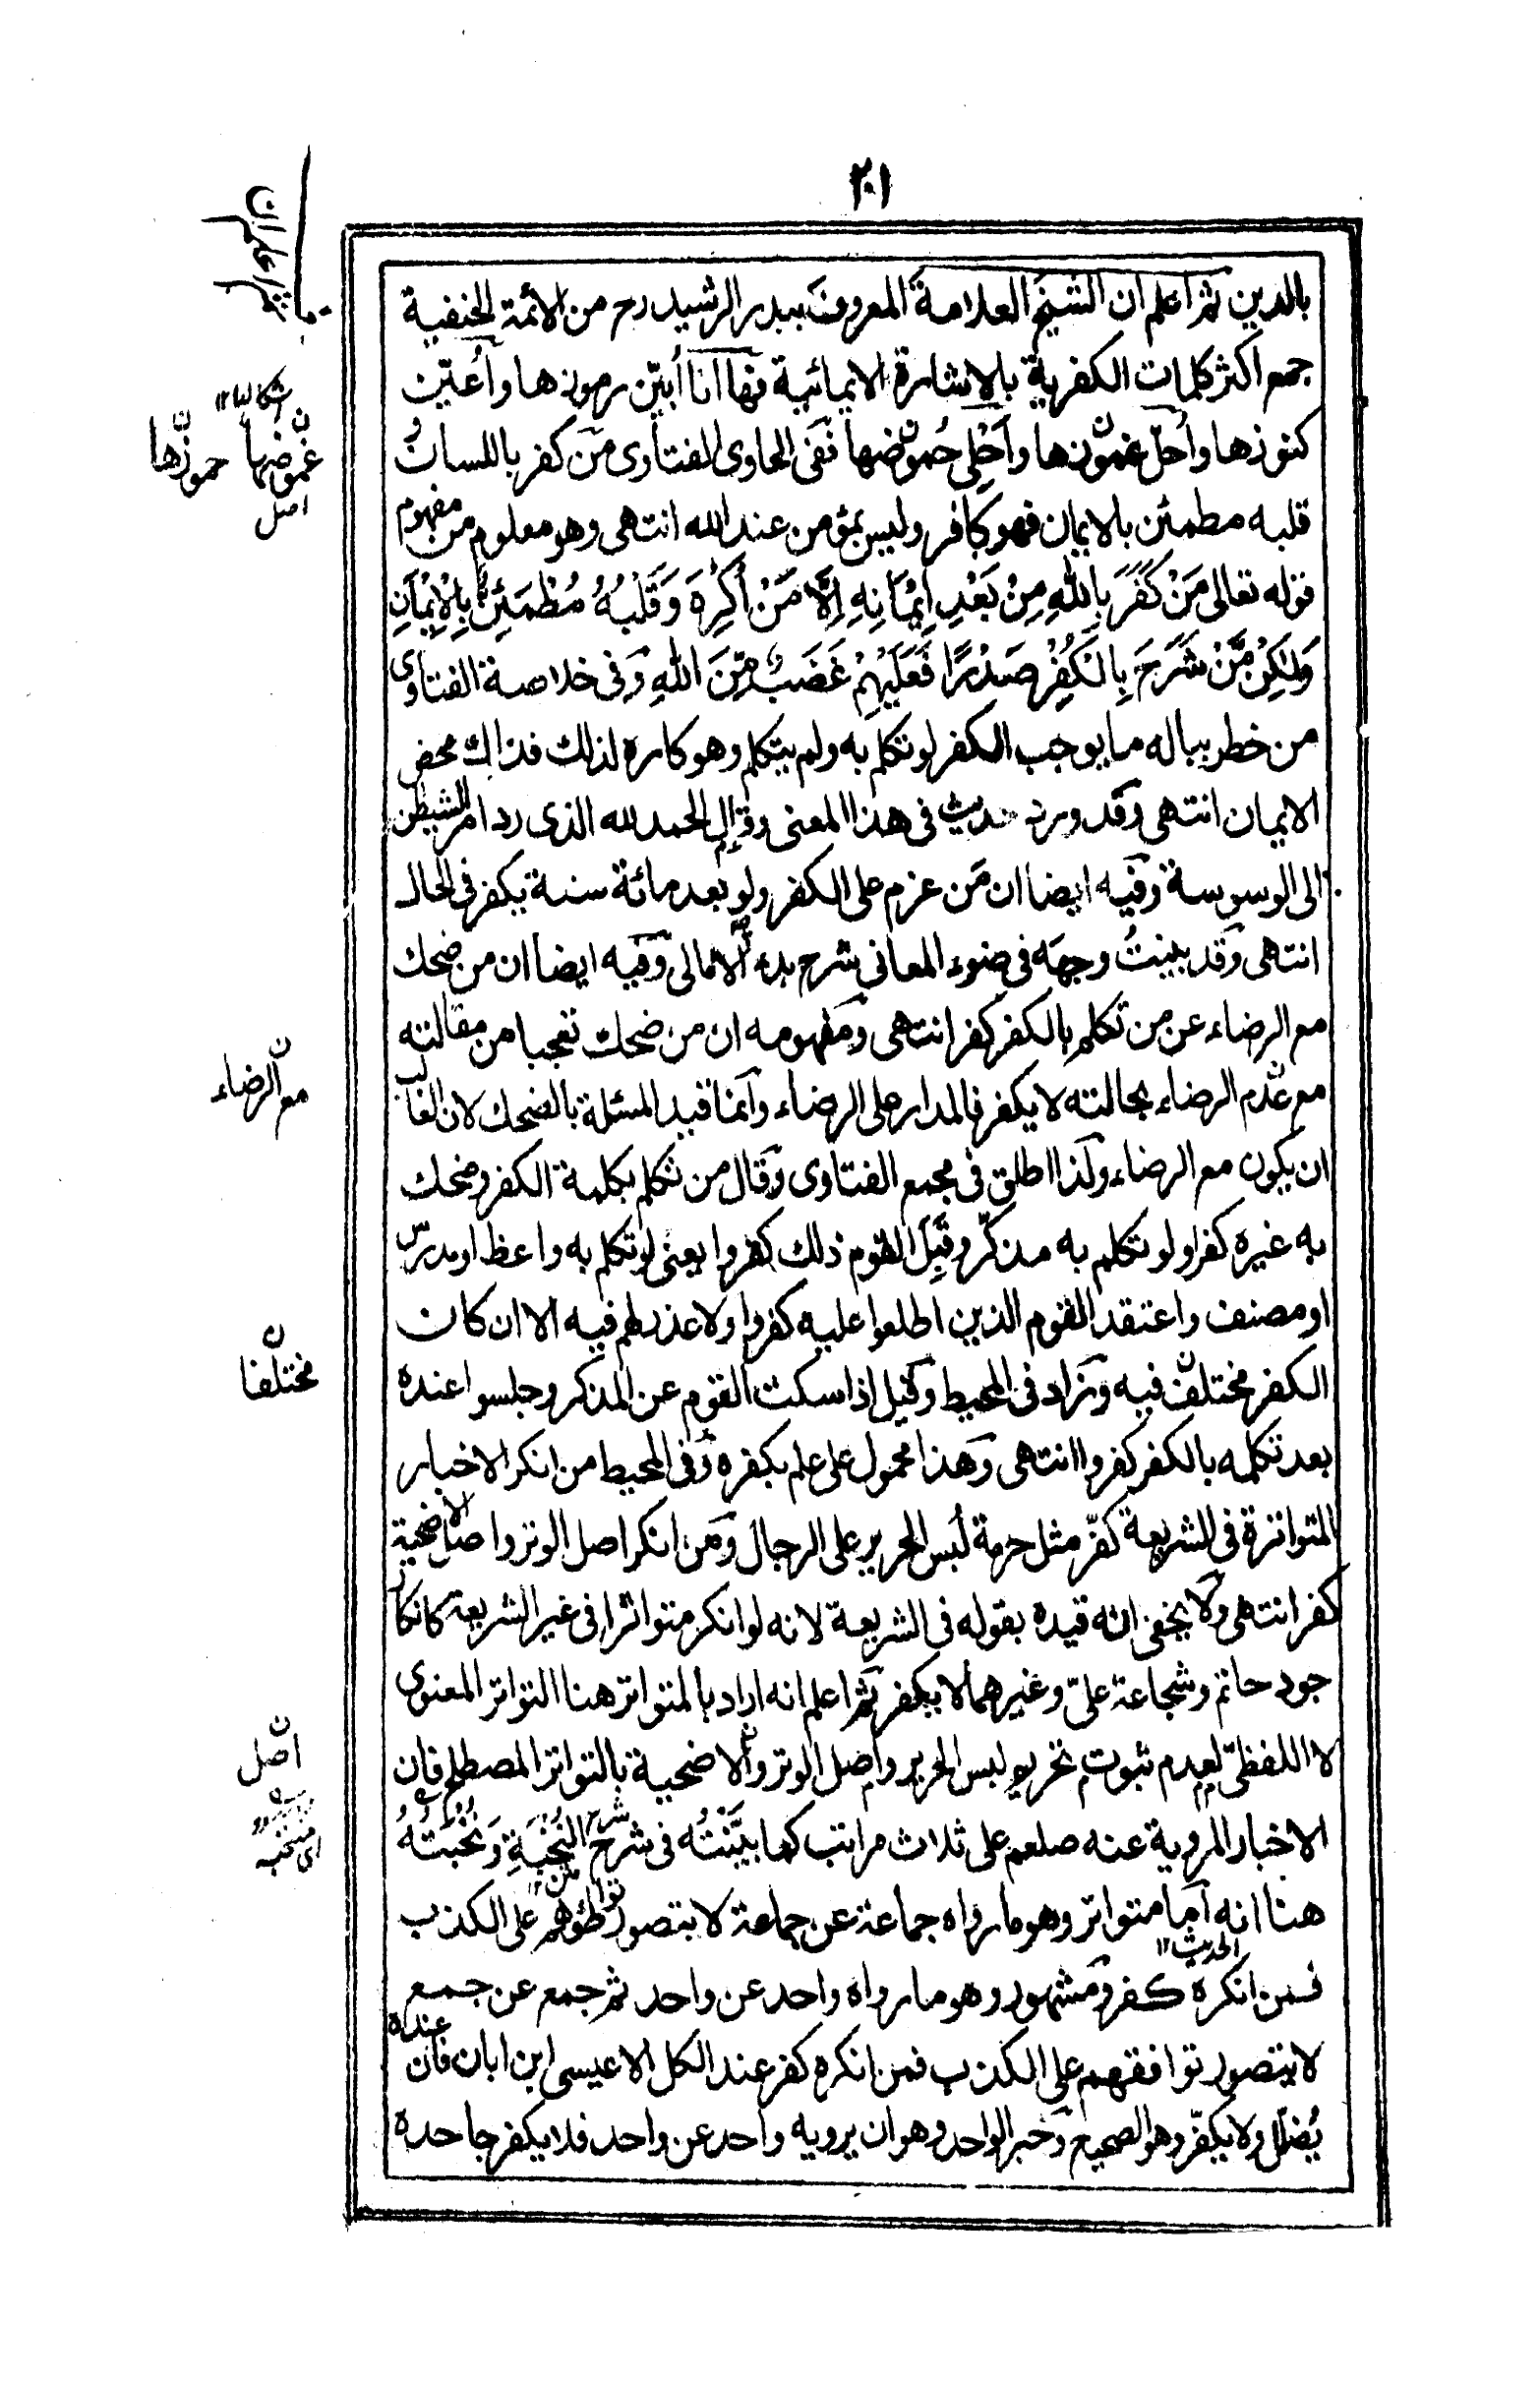 ٢٠١
بالدين ثم اعلم ان الشيخ العلامة المعروف ببدر الرشيد رح من الائمة الحنفية
جمع اكثر كلمات الكفرية بالاشارة الايمائية فها انا أبيّن رموزها وأعيّن
كنوزها وأحلّ غموزها وأحلي حموضها ففى الحاوى الفتاوى من كفر باللسان و
قلبه مطمئن بالايمان فهو كافر وليس بمؤمن عند الله انتهى وهو معلوم من مفهوم
قوله تعالى مَنْ كَفَرَ بِاللّٰهِ مِنْ بَعْدِ اِيْمَانِهِ اِلَّا مَنْ اُكْرِهَ وَقَلْبُهُ مُطْمَئِنٌّ بِالْاِيْمَانِ
وَلٰكِنْ مَّنْ شَرَحَ بِالْكُفْرِ صَدْرًا فَعَلَيْهِمْ غَضَبٌ مِّنَ اللّٰهِ وفى خلاصة الفتاوى
من خطر بباله ما يوجب الكفر لو تكلم به ولم يتكلم وهو كاره لذلك فذاك محض
الايمان انتهى وقد ورد حديث فى هذا المعنى وقال الحمد لله الذى رد امر الشيطن
الى الوسوسة وفيه ايضا ان من عزم على الكفر ولو بعد مائة سنة يكفر فى الحال
انتهى وقد بينتُ وجهه فى ضوء المعانى شرح بدء الامالى وفيه ايضا ان من ضحك
مع الرضاء عن من تكلم بالكفر كفر انتهى ومفهومه ان من ضحك تعجبا من مقالته
مع عدم الرضاء بحالته لا يكفر فالمدار على الرضاء وانما قيد المسئلة بالضحك لان الغالب
ان يكون مع الرضاء ولذا اطلق فى مجمع الفتاوى وقال من تكلم بكلمة الكفر وضحك
به غيره كفر او لو تكلم به مذكّر وقَبِلَ القوم ذلك كفروا يعنى لو تكلم به واعظ او مدرس
او مصنف واعتقد القوم الذين اطلعوا عليه كفروا ولا عذر لهم فيه الا ان كان
الكفر مختلف فيه وزاد فى المحيط وقيل اذا سكت القوم عن المذكر وجلسوا عنده
بعد تكلمه بالكفر كفروا انتهى وهذا محمول على علم بكفره وفى المحيط من انكر الاخبار
المتواترة فى الشريعة كفّر مثل حرمة لُبس الحرير على الرجال ومن انكر اصل الوتر واصل الاضحية
كفر انتهى ولا يخفى انه قيده بقوله فى الشريعة لانه لو انكر متواترا فى غير الشريعة كانكار
جود حاتم وشجاعة علىّ وغيرهما لا يكفر ثم اعلم انه اراد بالمتواتر هنا التواتر المعنوى
لا اللفظىّ لعدم ثبوت تحريم لبس الحرير واصل الوتر والاضحية بالتواتر المصطلح فان
الاخبار المروية عنه صلعم على ثلاث مراتب كما بيّنتُه فى شرح شرح النُخْبَةِ وَنُخْبَتُهُ
هنا انه اما متواتر وهو ما رواه جماعة عن جماعة لا يتصور تواطؤهم على الكذب
الحديث ١٢
فمن انكره كفر ومشهور وهو ما رواه واحد عن واحد ثم جمع عن جمع
لا يتصور توافقهم على الكذب فمن انكره كفر عند الكل الا عيسى ابن ابان فان عنده
يُضلّل ولا يكفّر وهو الصحيح وخبر الواحد وهو ان يرويه واحد عن واحد فلا يكفر جاحده
اشكالها ١٢
ن
غموضها
ن
حموزها
اصل
ن
مع الرضاء
ن
مختلفا
ن
اصل
اى منتخبه